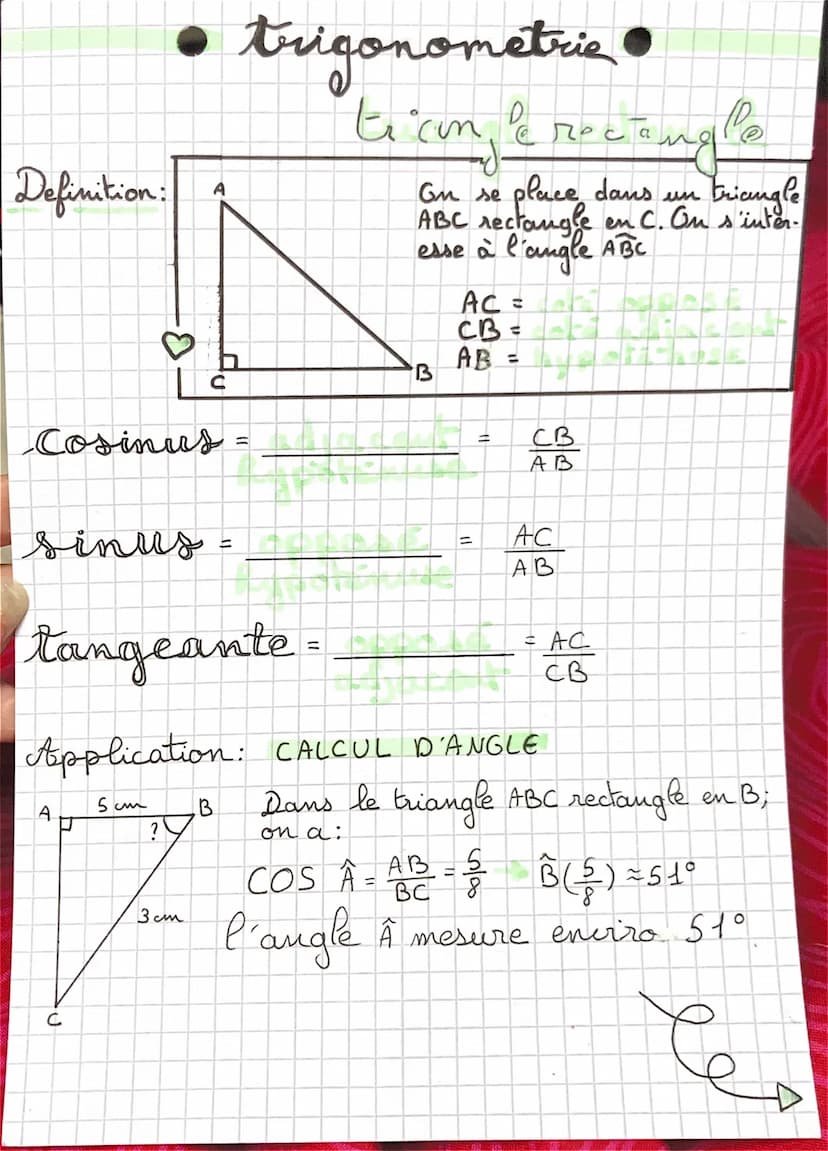 trigonometrie
triangle rectangle
Definition:
A
C
B
On se place dans un triangle
ABC rectangle en C. On s'intér-
esse à l'angle ABC
AC = coté opposé
CB = coté adjacent
AB = hypoténuse
Cosinus = adjacent / hypoténuse = CB / AB
sinus = opposé / hypoténuse = AC / AB
tangeante = opposé / adjacent = AC / CB
Application: CALCUL D'ANGLE
A 5 cm B
?
3 cm
C
Dans le triangle ABC rectangle en B;
on a:
COS Â = AB / BC = 5 / 8 → B̂ (5 / 8) ≈ 51°
l'angle Â mesure enviro 51°